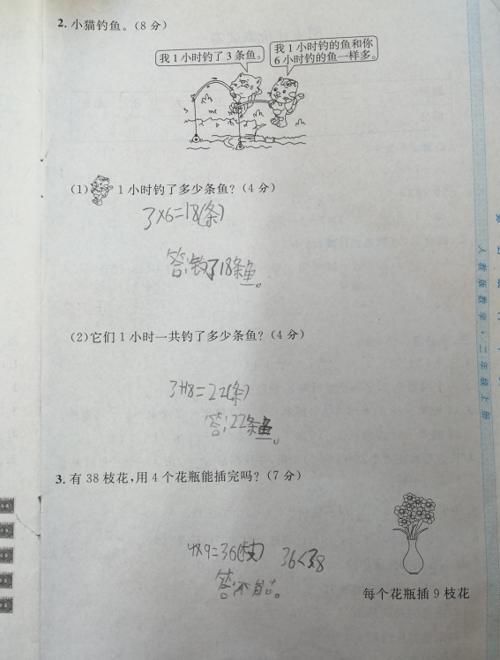 2. 小猫钓鱼。(8分)
我1小时钓了3条鱼。
我1小时钓的鱼和你
6小时钓的鱼一样多。
(1) 1小时钓了多少条鱼?(4分)
3×6=18(条)
答:钓了18条鱼。
(2)它们1小时一共钓了多少条鱼?(4分)
3+18=22(条)
答:22条鱼。
3. 有38枝花,用4个花瓶能插完吗?(7分)
4×9=36(枝) 36<38
答:不能。
每个花瓶插9枝花
人教版数学·二年级上册